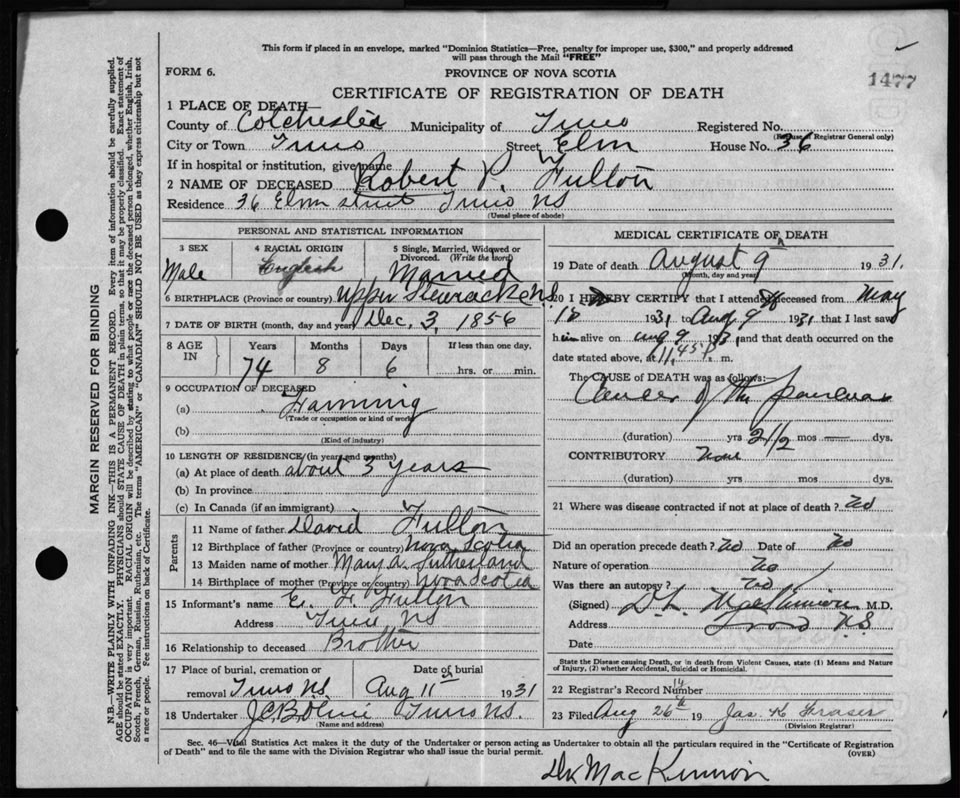 This form if placed in an envelope, marked "Dominion Statistics—Free, penalty for improper use, $300," and properly addressed
will pass through the Mail "FREE"
FORM 6.
PROVINCE OF NOVA SCOTIA
1477
CERTIFICATE OF REGISTRATION OF DEATH
1 PLACE OF DEATH—
County of Colchester Municipality of Truro Registered No.
(For use of Registrar General only)
City or Town Truro Street Elm House No. 36
If in hospital or institution, give name
2 NAME OF DECEASED Robert P. Fulton
Residence 36 Elm street Truro NS
(Usual place of abode)
PERSONAL AND STATISTICAL INFORMATION
3 SEX
Male
4 RACIAL ORIGIN
English
5 Single, Married, Widowed or
Divorced. (Write the word)
Married
6 BIRTHPLACE (Province or country) Upper Stewiacke N.S.
7 DATE OF BIRTH (month, day and year) Dec. 3, 1856
8 AGE IN
Years Months Days If less than one day.
74 8 6 hrs. or min.
9 OCCUPATION OF DECEASED
(a) Farming
(Trade or occupation or kind of work)
(b)
(Kind of industry)
10 LENGTH OF RESIDENCE (in years and months)
(a) At place of death about 3 years
(b) In province
(c) In Canada (if an immigrant)
Parents
11 Name of father David Fulton
12 Birthplace of father (Province or country) Nova Scotia
13 Maiden name of mother Mary A. Sutherland
14 Birthplace of mother (Province or country) Nova Scotia
15 Informant's name E. F. Fulton
Address Truro NS
16 Relationship to deceased Brother
17 Place of burial, cremation or Date of burial
removal Truro NS. Aug 11th 1931
18 Undertaker Truro NS.
(Name and address)
MEDICAL CERTIFICATE OF DEATH
19 Date of death August 9 1931.
(Month, day and year)
20 I HEREBY CERTIFY that I attended deceased from May
18 1931 to Aug 9 1931 that I last saw
him alive on Aug 9 1931, and that death occurred on the
date stated above, at 11.45 P. m.
The CAUSE of DEATH was as follows:
Cancer of the pancreas
(duration) yrs 2 1/2 mos — dys.
CONTRIBUTORY None
(duration) yrs. mos. dys.
21 Where was disease contracted if not at place of death? No
Did an operation precede death? No Date of No
Nature of operation No
Was there an autopsy? No
(Signed) D.L. MacKinnon M.D.
Address Truro N.S.
Date
State the Disease causing Death, or in death from Violent Causes, state (1) Means and Nature
of Injury, (2) whether Accidental, Suicidal or Homicidal.
22 Registrar's Record Number 14
23 Filed Aug 26th 19 Jas. H. Fraser
(Division Registrar)
Sec. 46—Vital Statistics Act makes it the duty of the Undertaker or person acting as Undertaker to obtain all the particulars required in the "Certificate of Registration
of Death" and to file the same with the Division Registrar who shall issue the burial permit. (OVER)
Dr MacKinnon
MARGIN RESERVED FOR BINDING
N.B.—WRITE PLAINLY WITH UNFADING INK—THIS IS A PERMANENT RECORD. Every item of information should be carefully supplied.
AGE should be stated EXACTLY. PHYSICIANS should STATE CAUSE OF DEATH in plain terms, so that it may be properly classified. Exact statement of
OCCUPATION is very important. RACIAL ORIGIN will be described by stating to what people or race the deceased person belonged, whether English, Irish,
Scotch, French, German, Russian, Ruthenian, etc. The terms "AMERICAN" or "CANADIAN" SHOULD NOT BE USED as they express citizenship but not
a race or people. See instructions on back of Certificate.